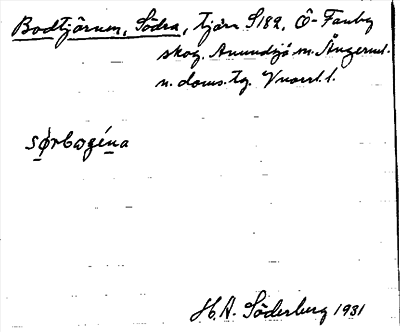 Bodtjärnen, Södra, tjärn S 182. Ö-Fanby
skog. Anundsjö sn. Ångerml.
n. doms. tg. Vnorrl. l.
H. A. Söderberg 1931